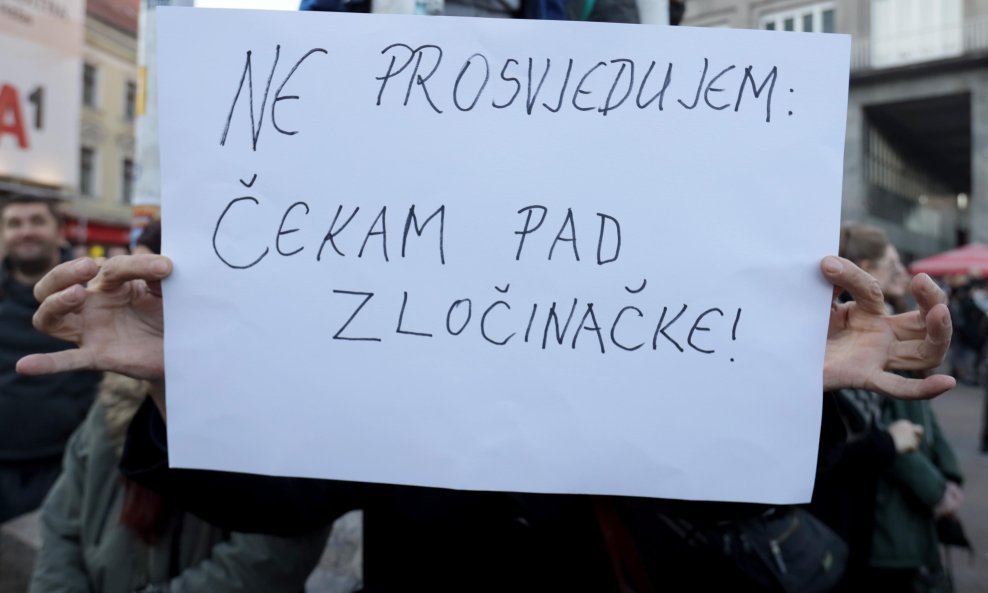 NE PROSVJEDUJEM:
ČEKAM PAD
ZLOČINAČKE!
A1